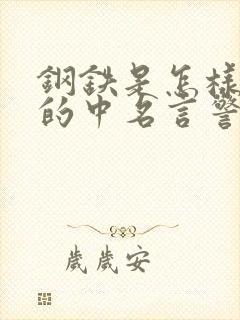 鋼鉄是怎樣
的中名言警
歲歲安